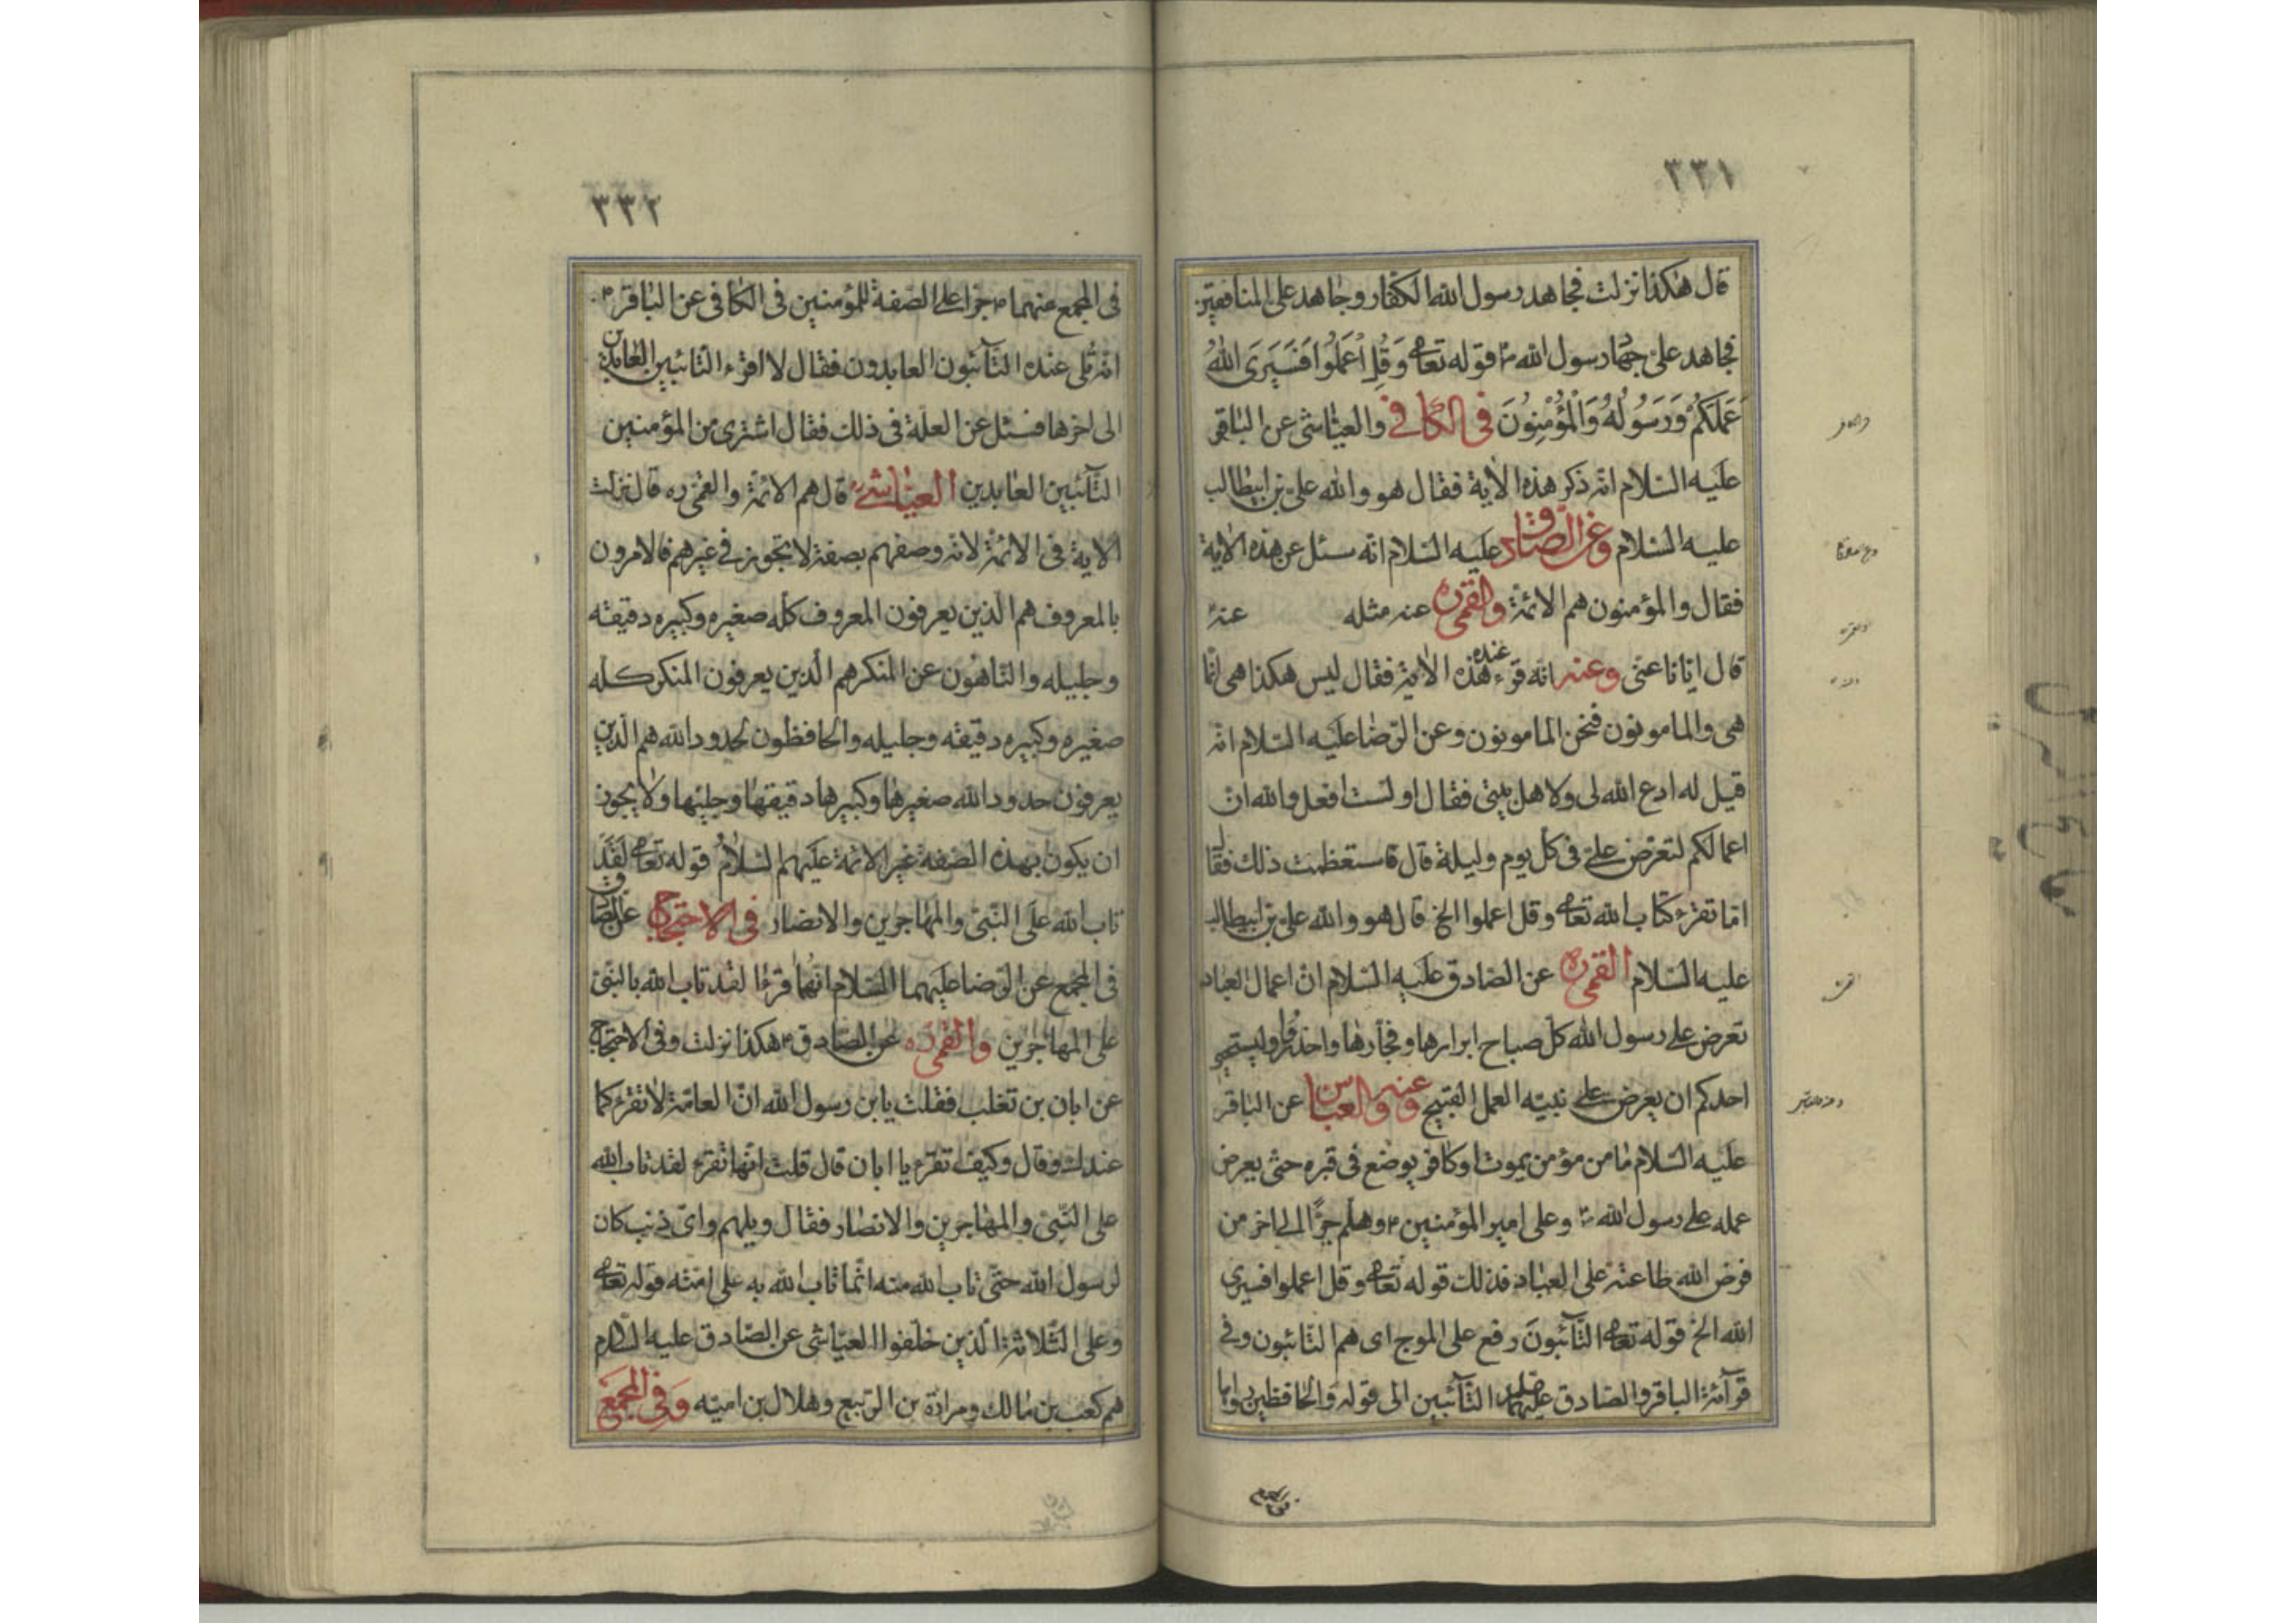 ٣٣١
قال هكذا نزلت فجاهد رسول الله الكفار وجاهد على المنافقين
فجاهد على جهاد رسول الله ص قوله تعالى وَقُلِ اعْمَلُوا فَسَيَرَى اللهُ
عَمَلَكُمْ وَرَسُولُهُ وَالْمُؤْمِنُونَ فى الكافى والعياشى عن الباقر
عليه السلام انه ذكر هذه الاية فقال هو والله على بن ابيطالب
عليه السلام وعن الصادق عليه السلام انه سئل عن هذه الاية
فقال والمؤمنون هم الائمة والقمى ره عنه مثله عنه
قال ايانا عنى وعنه انه قرء عنده هذه الاية فقال ليس هكذا هى انما
هى والمامونون فنحن المامونون وعن الرضا عليه السلام انه
قيل له ادع الله لى ولاهل بيتى فقال اولست افعل والله ان
اعمالكم لتعرض على فى كل يوم وليلة قال فاستعظمت ذلك فقال
اما تقرء كتاب الله تعالى وقل اعملوا الخ قال هو والله على بن ابيطالب
عليه السلام القمى ره عن الصادق عليه السلام ان اعمال العباد
تعرض على رسول الله كل صباح ابرارها وفجارها واحذروا وليستحيى
احدكم ان يعرض على نبيه العمل القبيح وعنه والعياشى عن الباقر
عليه السلام ما من مؤمن يموت او كافر يوضع فى قبره حتى يعرض
عمله على رسول الله ص وعلى امير المؤمنين ع وهلم جرا الى اخر من
فرض الله طاعته على العباد فذلك قوله تعالى وقل اعملوا فسيرى
الله الخ قوله تعالى التَّآئبُونَ رفع على الموج اى هم التائبون وفى
قرآءة الباقر والصادق عليهما السلام التآئبين الى قوله والحافظين رواها
٣٣٢
فى المجمع عنهما ع جرا على الصفة للمؤمنين فى الكافى عن الباقر ع
انه تلى عنده التآئبون العابدون فقال لا اقرء التائبين العابدين
الى اخرها فسئل عن العلة فى ذلك فقال اشترى من المؤمنين
التآئبين العابدين العياشى قال هم الائمة والقمى ره قال نزلت
الاية فى الائمة لانه وصفهم بصفة لا تجوز فى غيرهم فالامرون
بالمعروف هم الذين يعرفون المعروف كله صغيره وكبيره دقيقه
وجليله والناهون عن المنكر هم الذين يعرفون المنكر كله
صغيره وكبيره دقيقه وجليله والحافظون لحدود الله هم الذين
يعرفون حدود الله صغيرها وكبيرها دقيقها وجليها ولا يجوز
ان يكون بهذه الصفة غير الائمة عليهم السلامُ قوله تعالى لَقَدْ
تاب الله على النبى والمهاجرين والانصار فى الاحتجاج عن الصادق
فى المجمع عن الرضا عليهما السلام انهما قرءا لقد تاب الله بالنبى
على المهاجرين والقمى ره عن الصادق ع هكذا نزلت وفى الاحتجاج
عن ابان بن تغلب فقلت يابن رسول الله ان العامة لا تقرء كما
عندك وقال وكيف تقرء يا ابان قال قلت انها تقرء لقد تاب الله
على النبى والمهاجرين والانصار فقال ويلهم واى ذنب كان
لرسول الله حتى تاب الله منه انما تاب الله به على امته قوله تعالى
وعلى الثلاثة الذين خلفوا العياشى عن الصادق عليه السلام
هم كعب بن مالك ومرادة بن الربيع وهلال بن امية وَفِى المجمَع